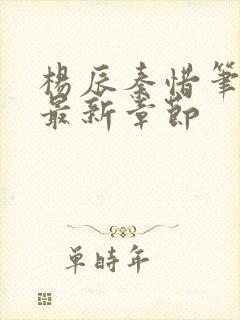 楊辰秦惜筆
最新章節
單時年